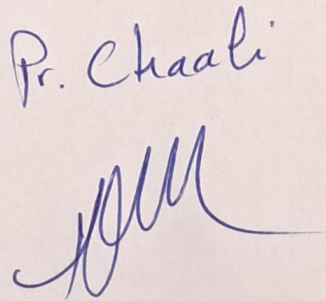 Pr. Chaali